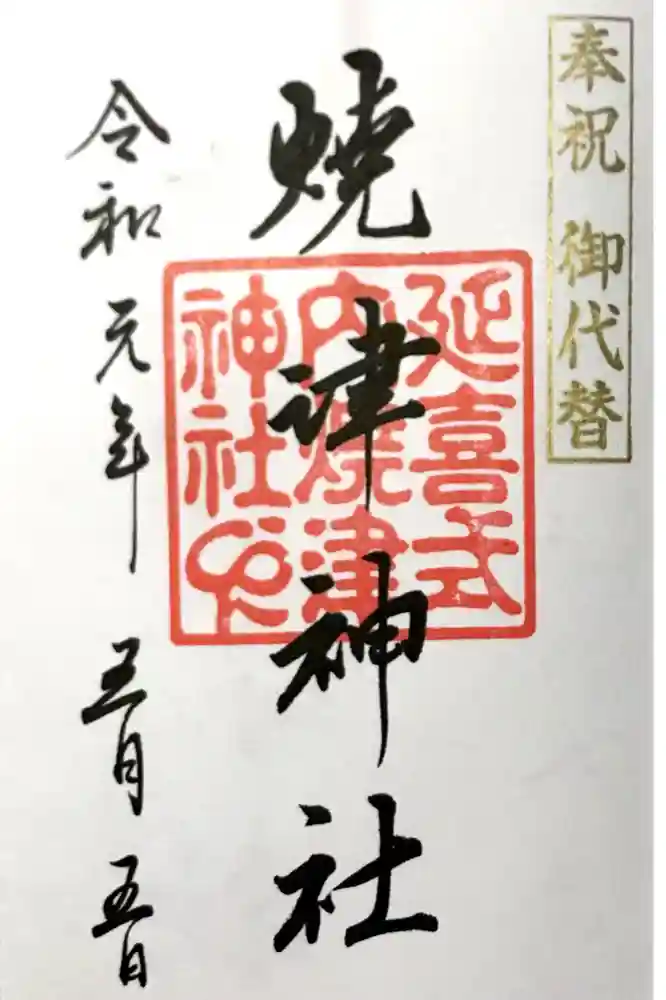 奉祝 御代替
焼津神社
延喜式
内焼津
神社印
令和元年 五月五日